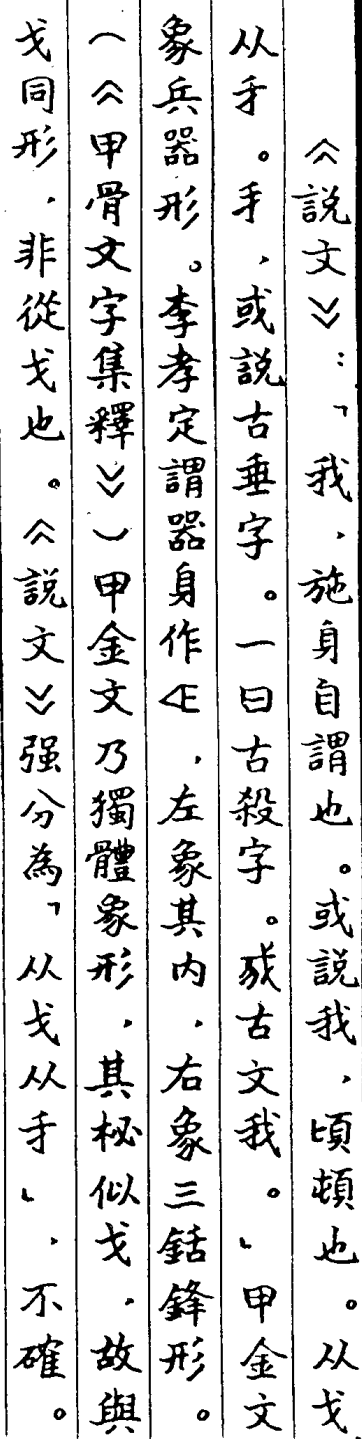 《説文》：「我，施身自謂也。或説我，頃頓也。从戈
从𠂹。𠂹，或説古垂字。一曰古殺字。𢦠古文我。」甲金文
象兵器形。李孝定謂器身作，左象其内，右象三銛鋒形。
（《甲骨文字集釋》）甲金文乃獨體象形，其柲似戈，故與
戈同形，非從戈也。《説文》强分為「从戈从𠂹」，不確。